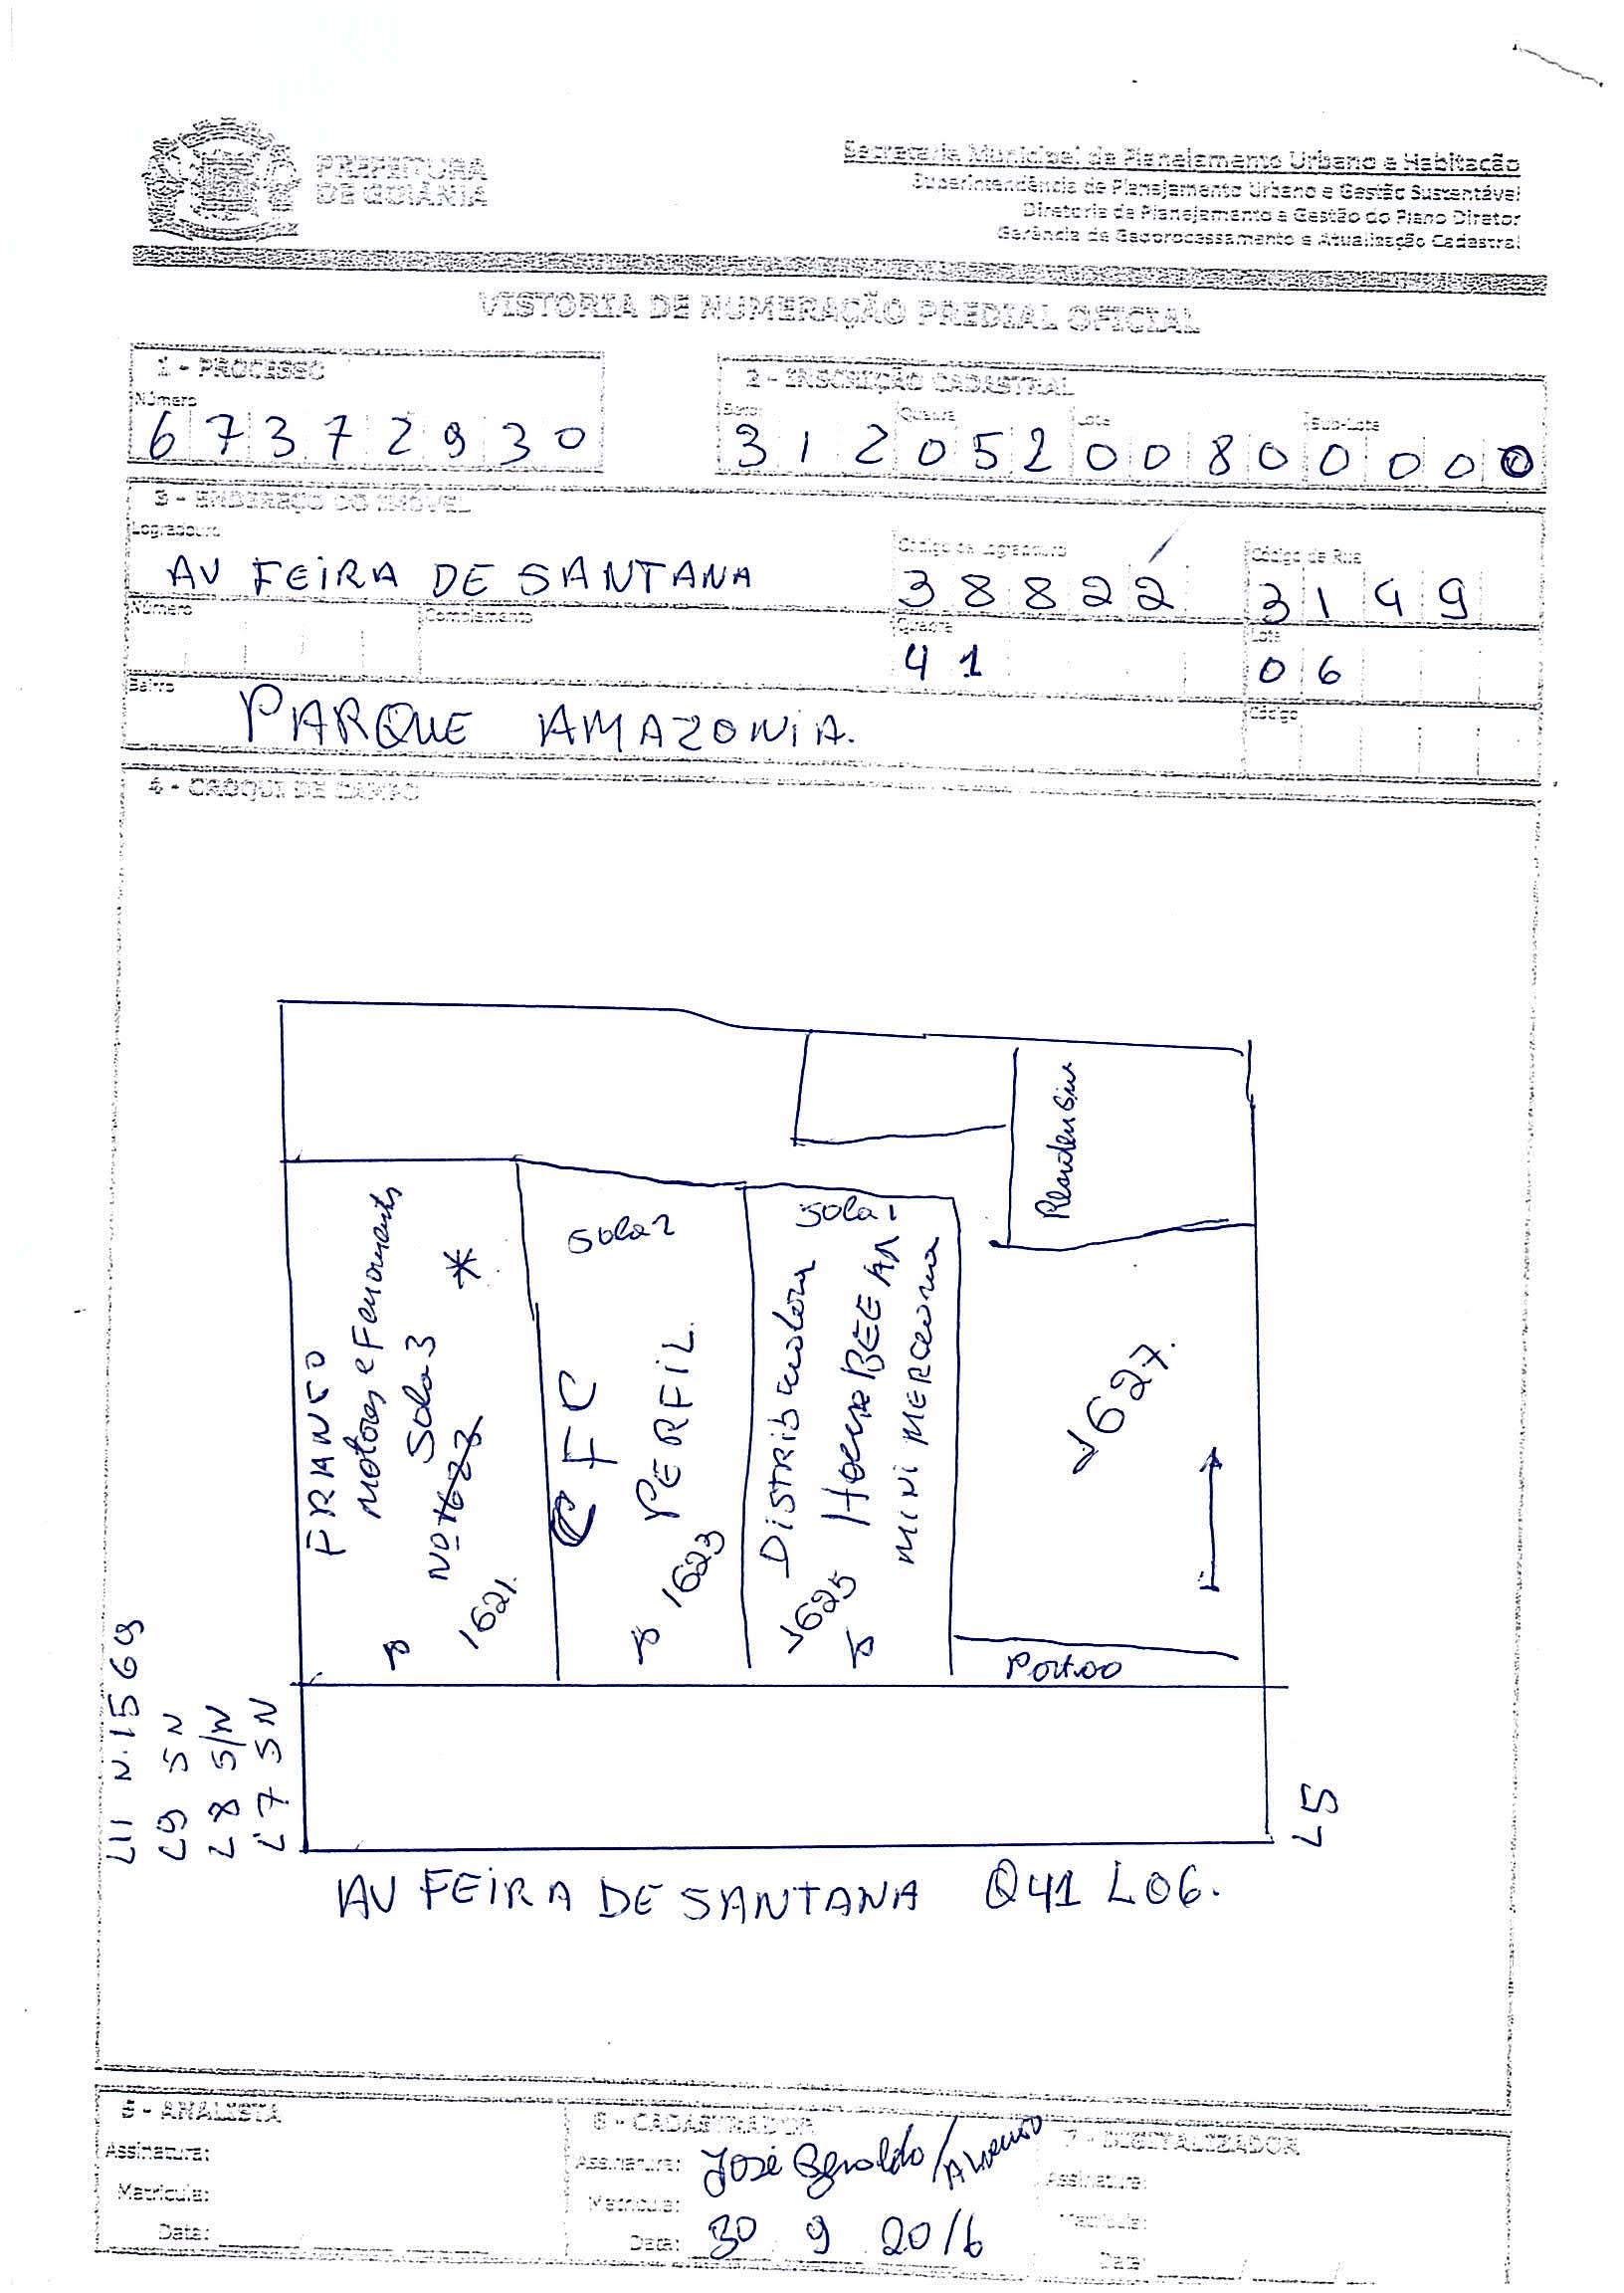 PREFEITURA
DE GOIÂNIA
Secretaria Municipal de Planejamento Urbano e Habitação
Superintendência de Planejamento Urbano e Gestão Sustentável
Diretoria de Planejamento e Gestão do Plano Diretor
Gerência de Geoprocessamento e Atualização Cadastral
VISTORIA DE NUMERAÇÃO PREDIAL OFICIAL
1 - PROCESSO
Número
6 7 3 7 2 9 3 0
2 - INSCRIÇÃO CADASTRAL
Setor Quadra Lote Sub-Lote
3 1 2 0 5 2 0 0 8 0 0 0 0 0
3 - ENDEREÇO DO IMÓVEL
Logradouro Código de Logradouro Código de Rua
AV FEIRA DE SANTANA 3 8 8 2 2 3 1 4 9
Número Complemento Quadra Lote
4 1 0 6
Bairro Código
PARQUE AMAZONIA.
4 - CROQUI DE CAMPO
FRANCO
Motores e Ferramentas
Sala 3 *
Nº 1623
1621.
Sala 2
CFC
PERFIL.
1623
Sala 1
Distribuidora
MINI MERCEARIA
1625
1627.
Portão
L11 N. 1569
L9 SN
L8 S/N
L7 SN
L5
AV FEIRA DE SANTANA Q41 L06.
5 - ANALISTA
Assinatura:
Matrícula:
Data:
6 - CADASTRADOR
Assinatura: José Geraldo /
Matrícula:
Data: 30 9 2016
7 - DIGITALIZADOR
Assinatura:
Matrícula:
Data: